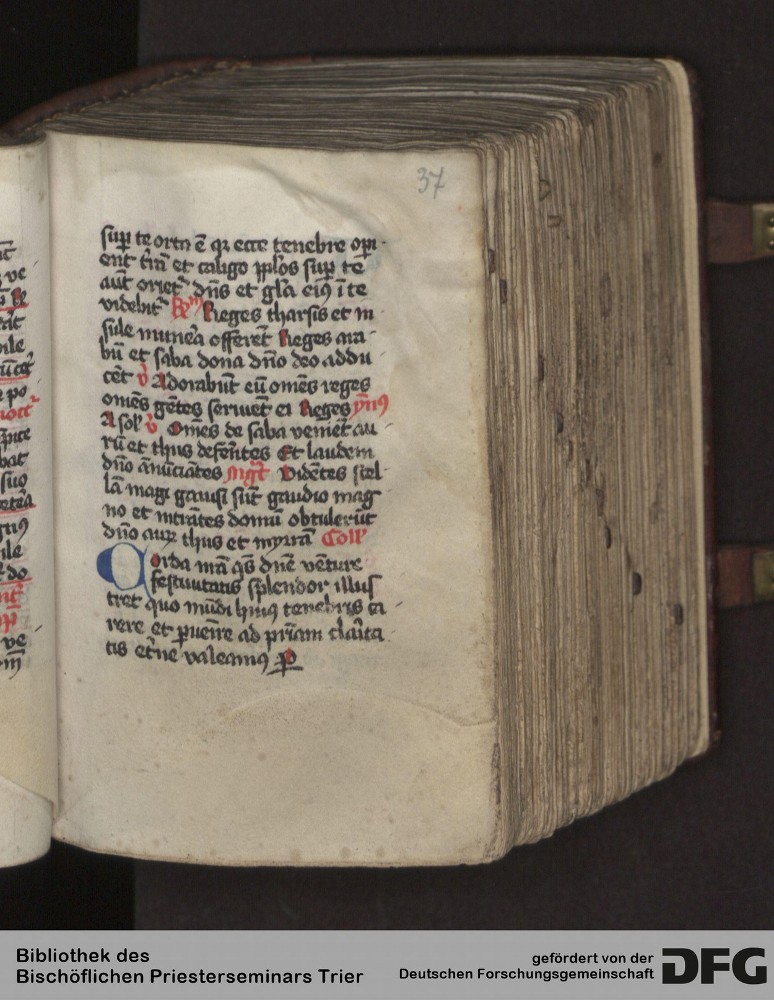 37
sup̄ te orta ē qz ecce tenebre opi-
ent t̄rā et caligo pp̄los sup̄ te
aūt oriet᷑ dn̄s et gl̄a eiꝰ ī te
videbit᷑ Reges tharsis et in
sule munera offeret Reges ara
bū et saba dona dn̄o deo addu
cēt v̄ Adorabūt eū om̄es reges
om̄es gētes seruiēt ei Reges ymꝰ
A sol᷑ v̄ Om̄es de saba veniēt au
rū et thus defērtes Et laudem
dn̄o ānūciātes mgt̄ Vidētes stel
lā magi gauisi sūt gaudio mag
no et intrātes domū obtulerūt
dn̄o auꝝ thus et myrrā Coll᷑
Corda nr̄a qs̄ dn̄e venture
festiuitatis splendor illus
tret quo mūdi huiꝰ tenebris ca
rere et ꝑuenire ad pr̄iam clarita
tis et̄ne valeamꝰ ꝑ
Bibliothek des
Bischöflichen Priesterseminars Trier
gefördert von der
Deutschen Forschungsgemeinschaft
DFG